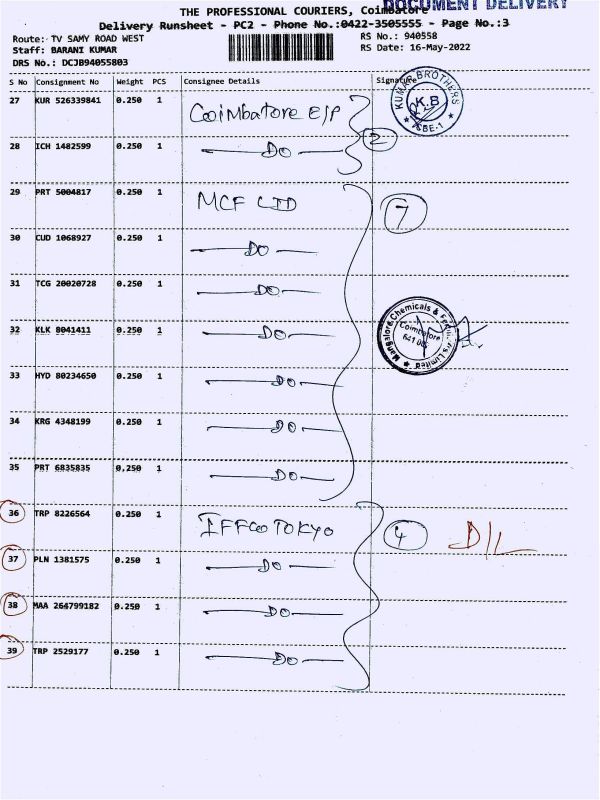 DOCUMENT DELIVERY
THE PROFESSIONAL COURIERS, Coimbatore
Delivery Runsheet - PC2 - Phone No.:0422-3505555 - Page No.:3
Route: TV SAMY ROAD WEST RS No.: 940558
Staff: BARANI KUMAR RS Date: 16-May-2022
DRS No.: DCJB94055803
S No Consignment No Weight PCS Consignee Details Signature
27 KUR 526339841 0.250 1 Coimbatore E/P
KUMAR BROTHERS K.B CBE-1
2
28 ICH 1482599 0.250 1 DO
29 PRT 5004817 0.250 1 MCF LTD 7
30 CUD 1068927 0.250 1 DO
31 TCG 20020728 0.250 1 DO
32 KLK 8041411 0.250 1 DO
Mangalore Chemicals & Fertilizers Limited Coimbatore
33 HYD 80234650 0.250 1 DO
34 KRG 4348199 0.250 1 DO
35 PRT 6835835 0.250 1 DO
36 TRP 8226564 0.250 1 IFFCO TOKYO 4 D/L
37 PLN 1381575 0.250 1 DO
38 MAA 264799182 0.250 1 DO
39 TRP 2529177 0.250 1 DO